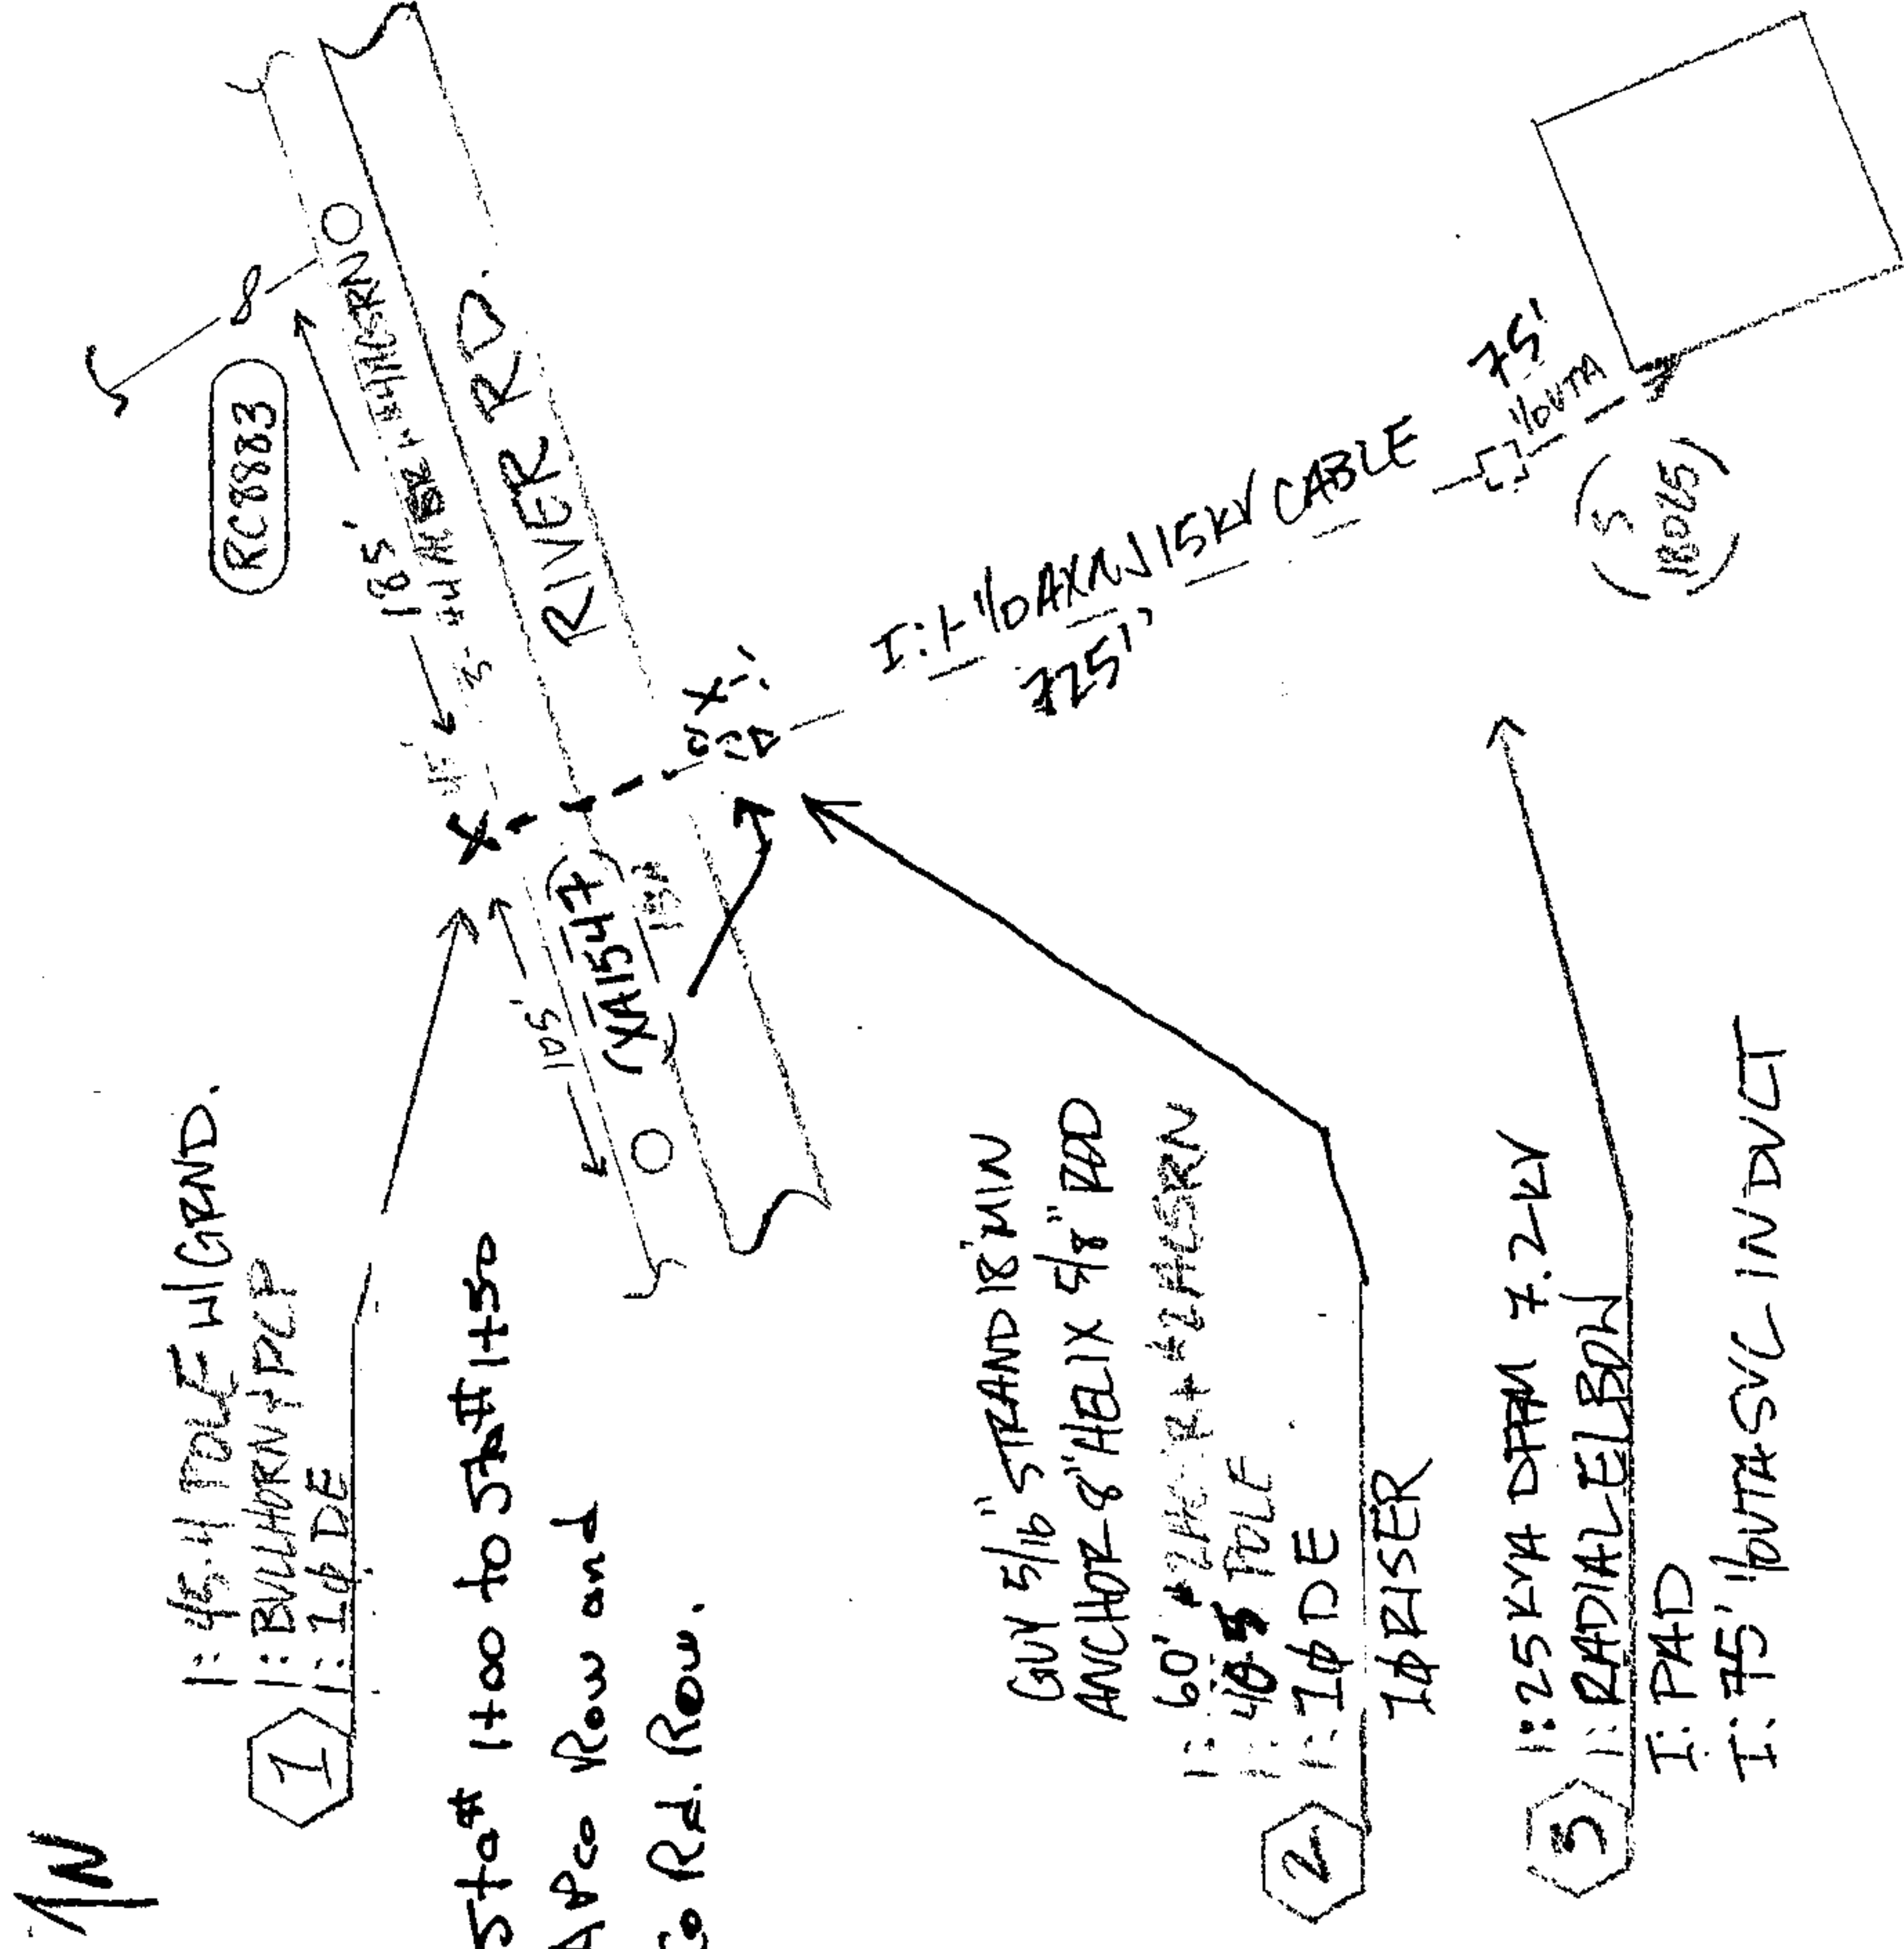 N
1: 45-4 POLE W/GRND.
1: BULLHORN + PCP
1: 1ø DE
1
Sta# 1+00 to Sta# 1+50
APCo Row and
Co Rd. Row.
GUY 5/16" STRAND 18' MIN
ANCHOR-8" HELIX 5/8" ROD
1: 60'
POLE
1: 1ø DE
2
1ø RISER
1: 25 KVA DFPM 7.2KV
1: RADIAL ELBOW
3
I: PAD
I: 75' 1/0 UTA SVC IN DUCT
RC8883
185'
RIVER RD.
105'
(XA1547)
X
X
I: 1-1/0 AXNJ 15KV CABLE
725'
75'
1/0 UTA